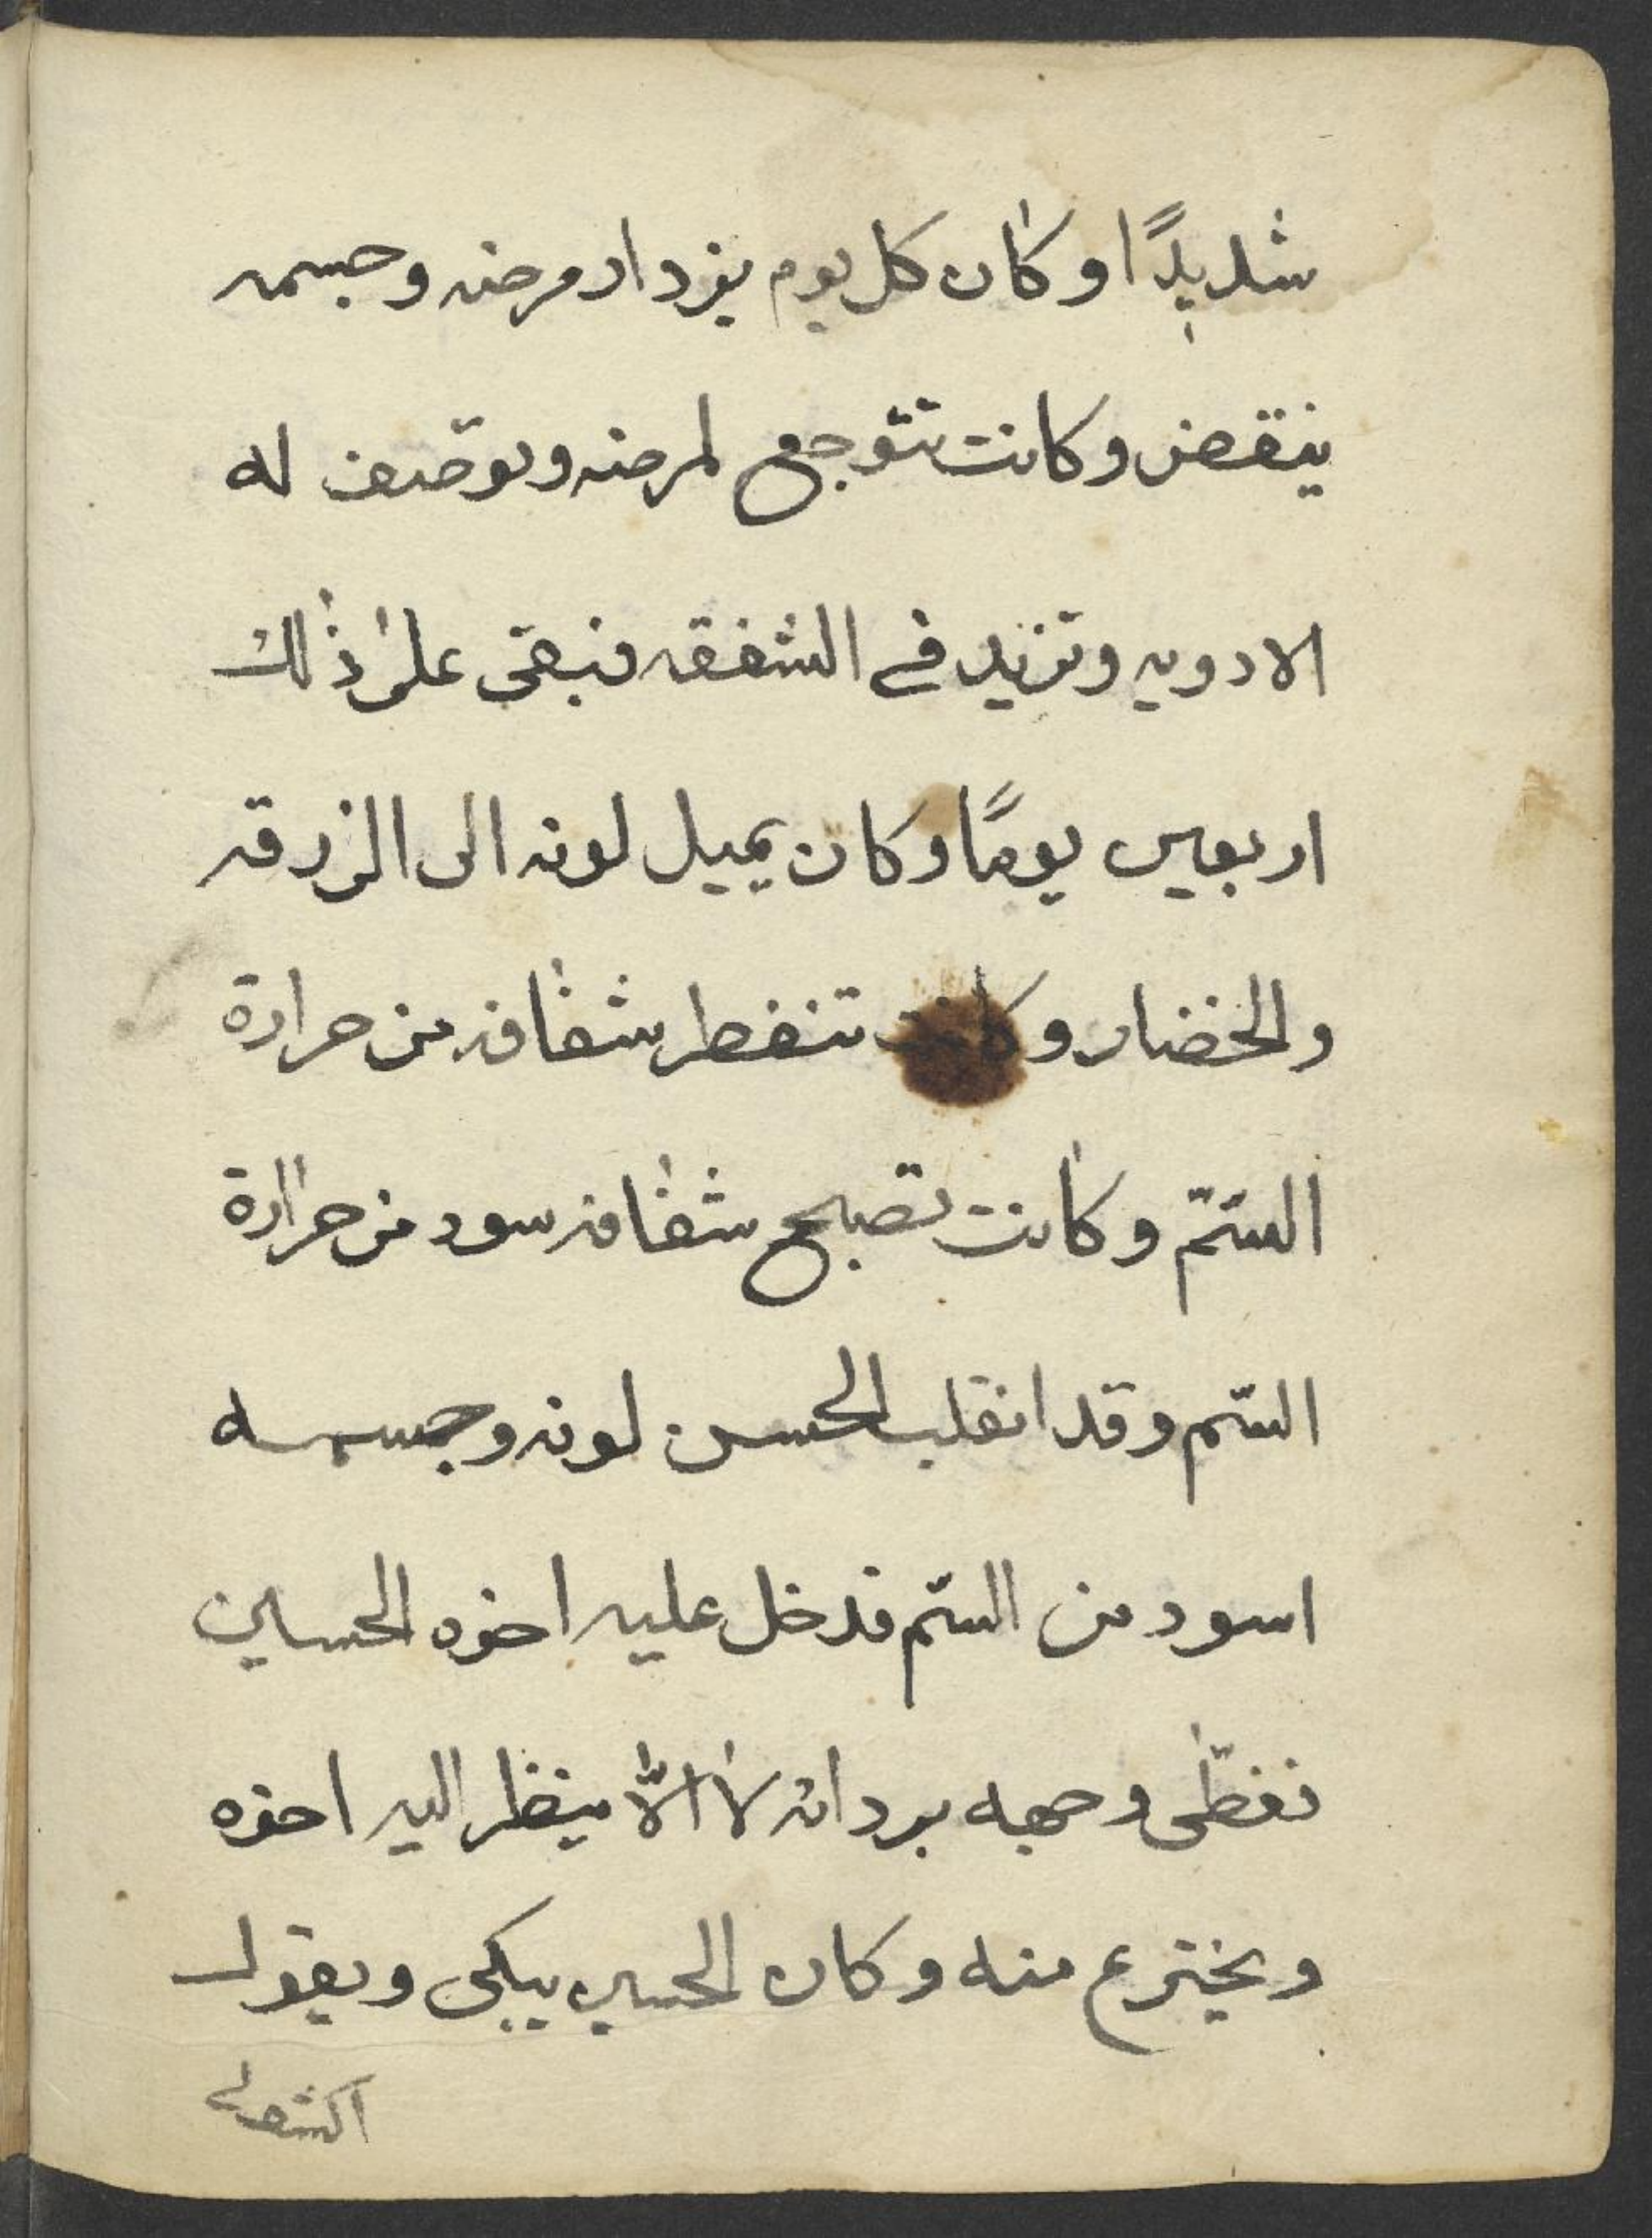 شديدًا وكان كل يوم يزداد مرضه وجسمه
ينقض وكانت تتوجع لمرضه وتوصف له
الادويه وتزيد في الشفقه فبقى على ذلك
اربعين يومًا وكان يميل لونه الى الزرقه
والخضار وكانت تنفطر شفافه من حرارة
السّمّ وكانت تصبح شفافه سود من حرارة
السّم وقد انقلب الحسن لونه وجسمه
اسود من السّم فدخل عليه اخوه الحسين
فغطّى وجهه بردائه لا الّا ينظر اليه اخوه
ويخترع منه وكان الحسين يبكى ويقول
اكشف لي